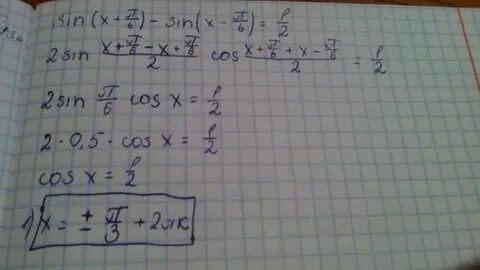 sin(x + π/6) - sin(x - π/6) = 1/2
2 sin (x + π/6 - x + π/6)/2 cos (x + π/6 + x - π/6)/2 = 1/2
2 sin π/6 cos x = 1/2
2 · 0,5 · cos x = 1/2
cos x = 1/2
1) x = ± π/3 + 2πk